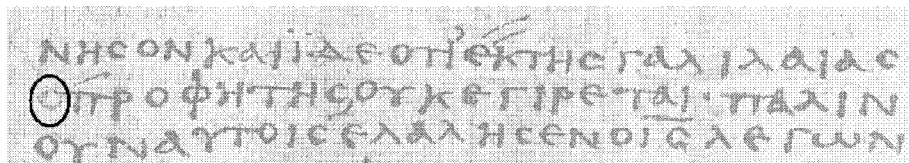 ΝΗϹΟΝΚΑΙΪΔΕΟΤΙΕΚΤΗϹΓΑΛΙΛΑΙΑϹ
ΟΠΡΟΦΗΤΗϹΟΥΚΕΓΙΡΕΤΑΙ·ΠΑΛΙΝ
ΟΥΝΑΥΤΟΙϹΕΛΑΛΗϹΕΝΟΙ̅Ϲ̅ΛΕΓΩΝ